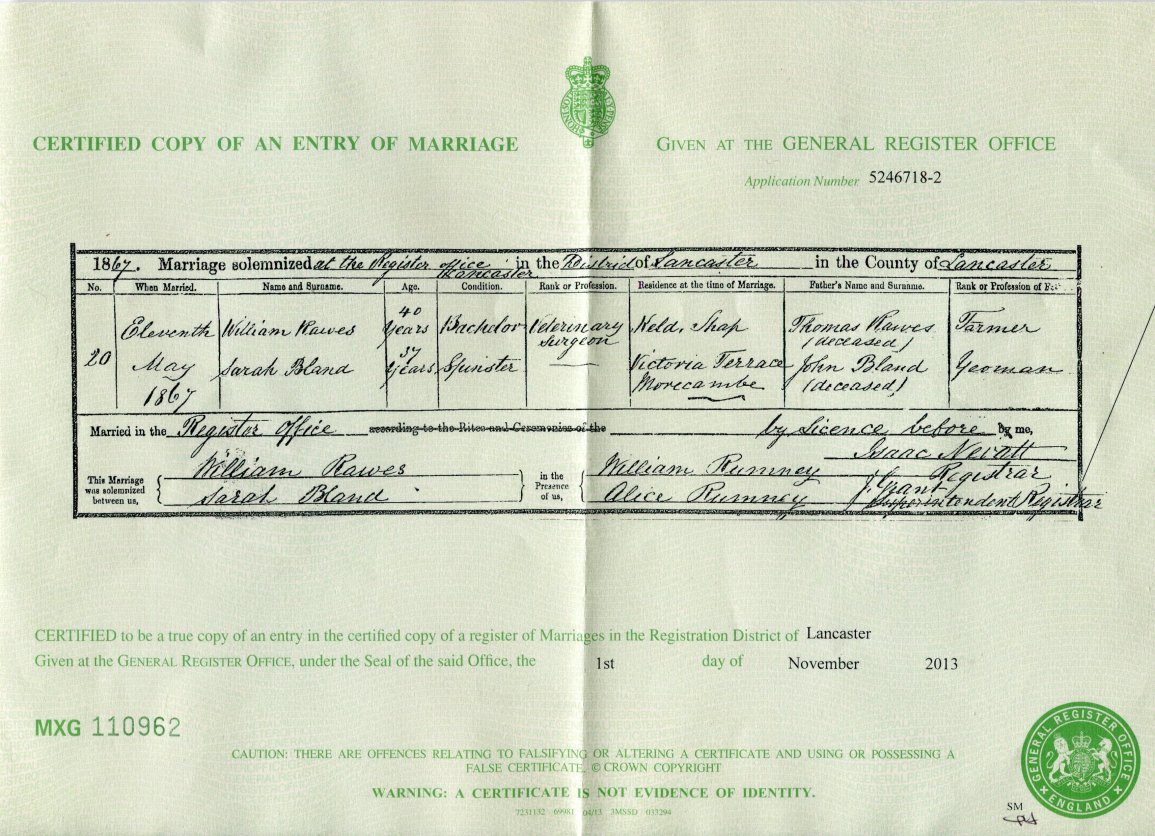 CERTIFIED COPY OF AN ENTRY OF MARRIAGE
GIVEN AT THE GENERAL REGISTER OFFICE
Application Number 5246718-2
1867. Marriage solemnized at the Register office Lancaster in the District of Lancaster in the County of Lancaster
No. When Married. Name and Surname. Age. Condition. Rank or Profession. Residence at the time of Marriage. Father's Name and Surname. Rank or Profession of
20 Eleventh May 1867
William Rawes 40 years Bachelor Veterinary Surgeon Keld, Shap Thomas Rawes (deceased) Farmer
Sarah Bland 37 years Spinster — Victoria Terrace Morecambe John Bland (deceased) Yeoman
Married in the Register Office according to the Rites and Ceremonies of the by Licence before by me,
This Marriage was solemnized between us, William Rawes Sarah Bland in the Presence of us, William Rumney Alice Rumney
Isaac Nevatt Registrar
Grant
Superintendent Registrar
CERTIFIED to be a true copy of an entry in the certified copy of a register of Marriages in the Registration District of Lancaster
Given at the GENERAL REGISTER OFFICE, under the Seal of the said Office, the 1st day of November 2013
MXG 110962
CAUTION: THERE ARE OFFENCES RELATING TO FALSIFYING OR ALTERING A CERTIFICATE AND USING OR POSSESSING A
FALSE CERTIFICATE. © CROWN COPYRIGHT
WARNING: A CERTIFICATE IS NOT EVIDENCE OF IDENTITY.
7231132 69981 04/13 3MSSD 033294
GENERAL REGISTER OFFICE ENGLAND
SM